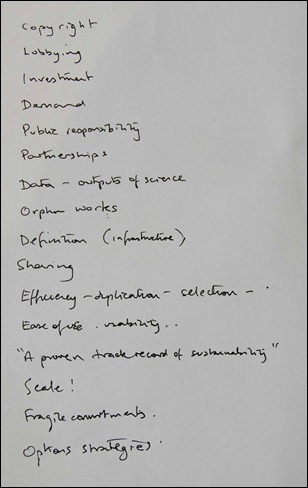 Copyright
Lobbying
Investment
Demand
Public responsibility
Partnerships
Data - outputs of science
Orphan works
Definition (infrastructure)
Sharing
Efficiency - duplication - selection - .
Ease of use . usability . .
"A proven track record of sustainability"
Scale!
Fragile commitments.
Options strategies.